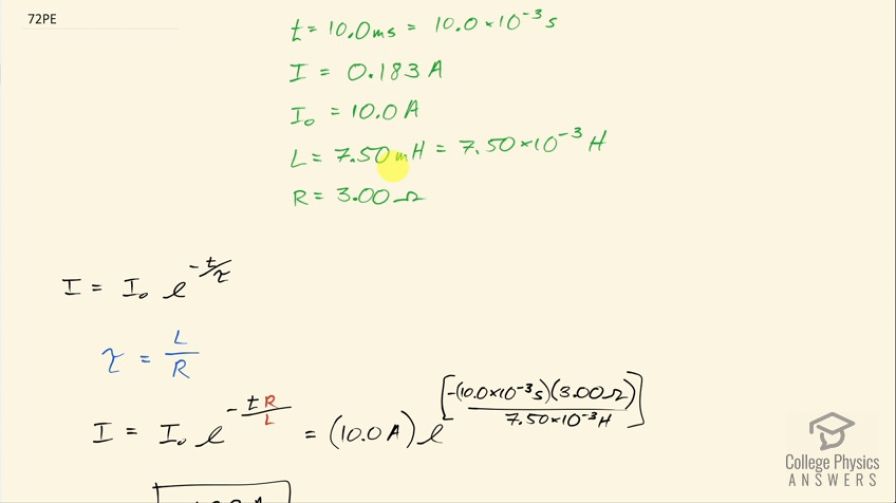 72PE
t = 10.0 ms = 10.0 × 10⁻³ s
I = 0.183 A
I₀ = 10.0 A
L = 7.50 mH = 7.50 × 10⁻³ H
R = 3.00 Ω
I = I₀ e^(-t/τ)
τ = L/R
I = I₀ e^(-tR/L) = (10.0 A) e^[-(10.0×10⁻³ s)(3.00 Ω)/7.50×10⁻³ H]
College Physics
ANSWERS